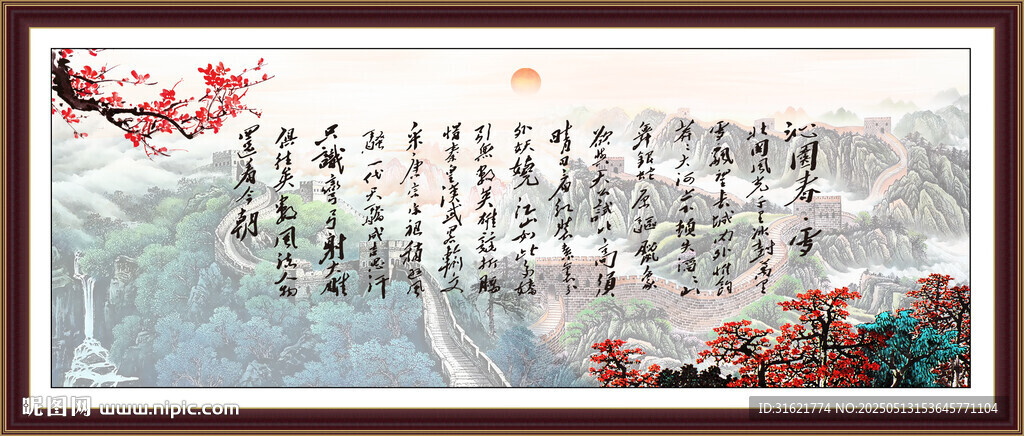 沁園春·雪
北国风光千里冰封萬里
雪飘望长城内外惟餘
莽莽大河上下顿失滔滔山
舞银蛇原驰蜡象
欲与天公试比高须
晴日看红装素裹分
外妖娆江山如此多娇
引無数英雄竞折腰
惜秦皇汉武略输文
采唐宗宋祖稍逊风
骚一代天骄成吉思汗
只識彎弓射大雕
俱往矣数風流人物
還看今朝
昵图网 www.nipic.com
ID:31621774 NO:20250513153645771104